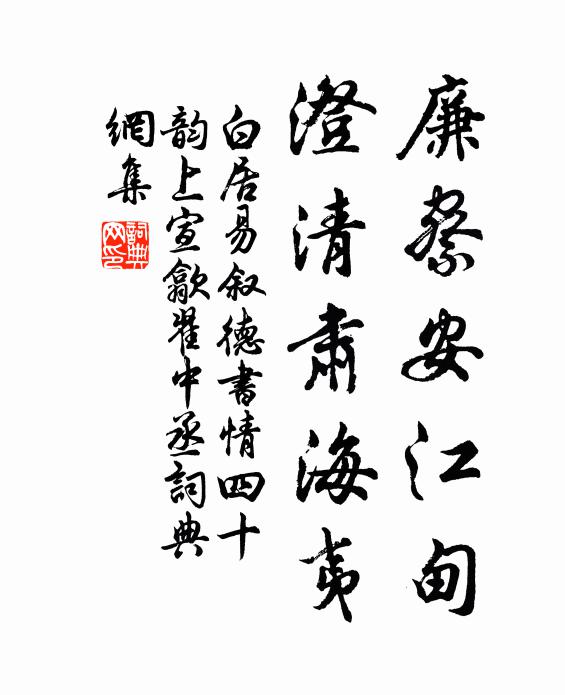 廉察安江甸
澄清肅海夷
白居易叙德書情四十
韵上宣歙翟中丞詞典
網集
詞典
网印